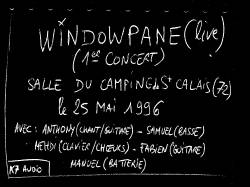 WiNDOWPANE (live)
(1er CONCERT)
SALLE DU CAMPING St CALAIS (72)
le 25 MAI 1996
AVEC : ANTHONY (CHANT/GUITARE) - SAMUEL (BASSE)
MEHDI (CLAVIER/CHŒURS) - FABIEN (GUITARE)
MANUEL (BATTERIE)
K7 AUDIO